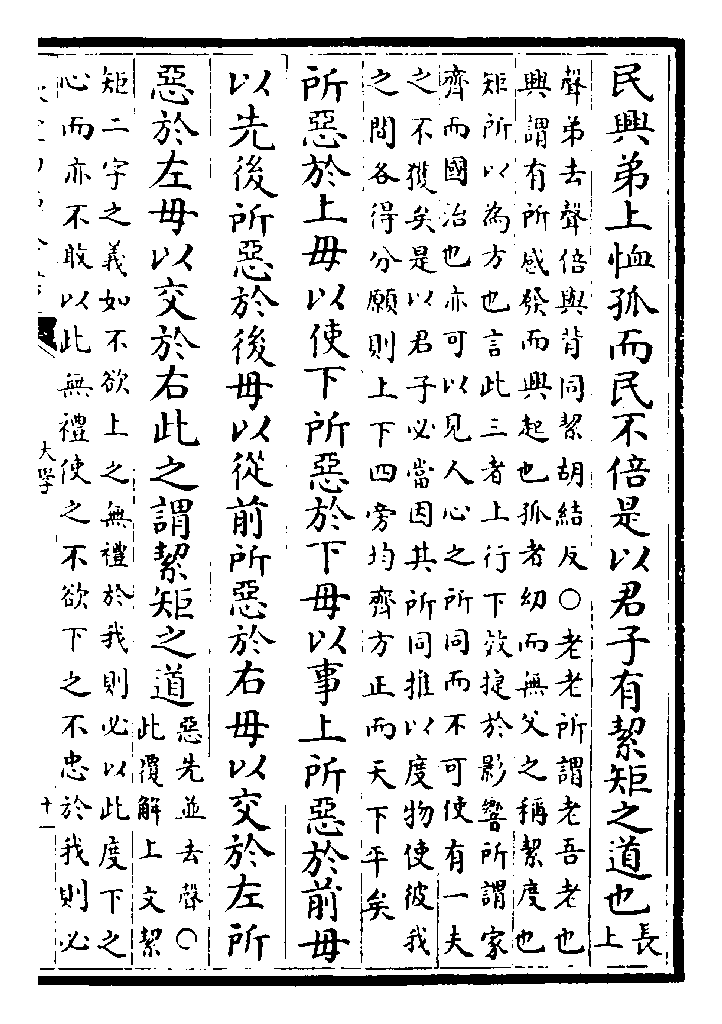 民興弟上恤孤而民不倍是以君子有絜矩之道也長上
聲弟去聲倍與背同絜胡結反○老老所謂老吾老也
興謂有所感發而興起也孤者幼而無父之稱絜度也
矩所以為方也言此三者上行下效捷於影響所謂家
齊而國治也亦可以見人心之所同而不可使有一夫
之不獲矣是以君子必當因其所同推以度物使彼我
之間各得分願則上下四旁均齊方正而天下平矣
所惡於上毋以使下所惡於下毋以事上所惡於前毋
以先後所惡於後毋以從前所惡於右毋以交於左所
惡於左毋以交於右此之謂絜矩之道
惡先並去聲○
此覆解上文絜
矩二字之義如不欲上之無禮於我則必以此度下之
心而亦不敢以此無禮使之不欲下之不忠於我則必
大學
十一